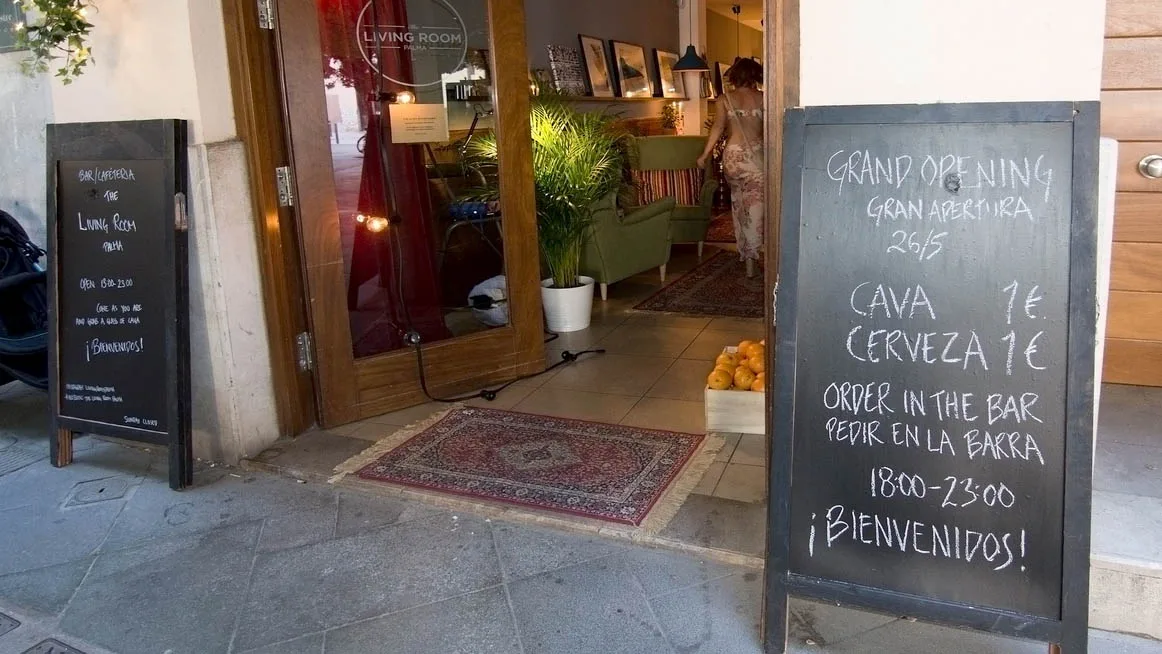 LIVING ROOM
PALMA
BAR/CAFÉTERIA
THE
LIVING ROOM
PALMA
OPEN 18:00-23:00
COME AS YOU ARE
AND GRAB A GLASS OF CAVA
¡BIENVENIDOS!
SUNDAY CLOSED
GRAND OPENING
GRAN APERTURA
26/5
CAVA 1€.
CERVEZA 1€
ORDER IN THE BAR
PEDIR EN LA BARRA
18:00-23:00
¡BIENVENIDOS!